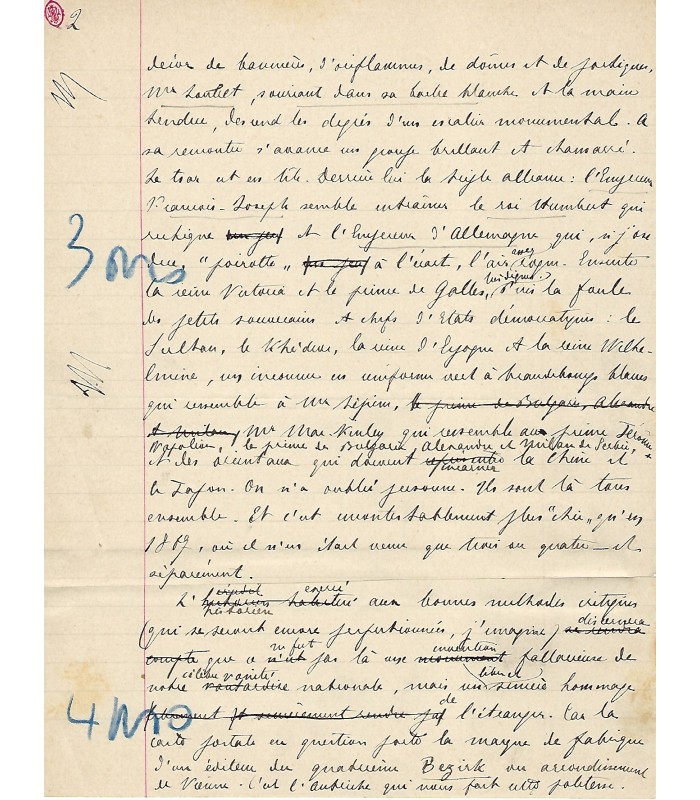 2
décor de bannières, d'oriflammes, de dômes et de portiques,
Mr Loubet, souriant dans sa barbe blanche et la main
tendue, descend les degrés d'un escalier monumental. A
sa rencontre s'avance un groupe brillant et chamarré.
Le tsar est en tête. Derrière lui la triple alliance : l'Empereur
François-Joseph semble entraîner le roi Humbert qui
3 ons
rechigne un peu et l'Empereur d'Allemagne qui, si j'ose
dire, "poirotte" un peu à l'écart, l'air avec
la reine Victoria et le prince de Galles, puis la foule
des petits souverains et chefs d'Etats démocratiques : le
Sultan, le Khédive, la reine d'Espagne et la reine Wilhe-
lmine, un inconnu en uniforme vert à brandebourgs blancs
qui ressemble à Mr Lépine, le prince de Bulgarie, Alexandre
et Milan, Mr Mac-Kinley qui ressemble au prince Jérôme
Napoléon, le prince de Bulgarie, Alexandre et Milan de Serbie,
et des orientaux qui doivent incarner la Chine et
le Japon. On n'a oublié personne. Ils sont là tous
ensemble. Et c'est incontestablement plus "chic" qu'en
1867, où il n'en était venu que trois ou quatre — et
séparément.
L'historien exercé aux bonnes méthodes critiques
(qui se seront encore perfectionnées, j'imagine) discernera
se rendra
compte que ce ne fut pas là une invention fallacieuse de
notre vantardise vanité nationale, mais un sincère hommage
4 ons
de l'étranger. Car la
carte postale en question porte la marque de fabrique
d'un éditeur du quatrième Bezirk ou arrondissement
de Vienne. C'est l'Autriche qui nous fait cette politesse.